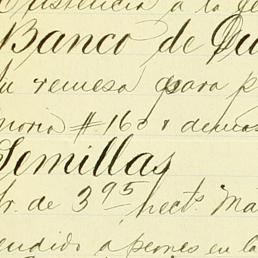 Existencia a la fe
Banco de Du
Su remesa para p
noria #160 & demas
Semillas
Pr. de 3 95 hects. Ma
vendido a peones en la